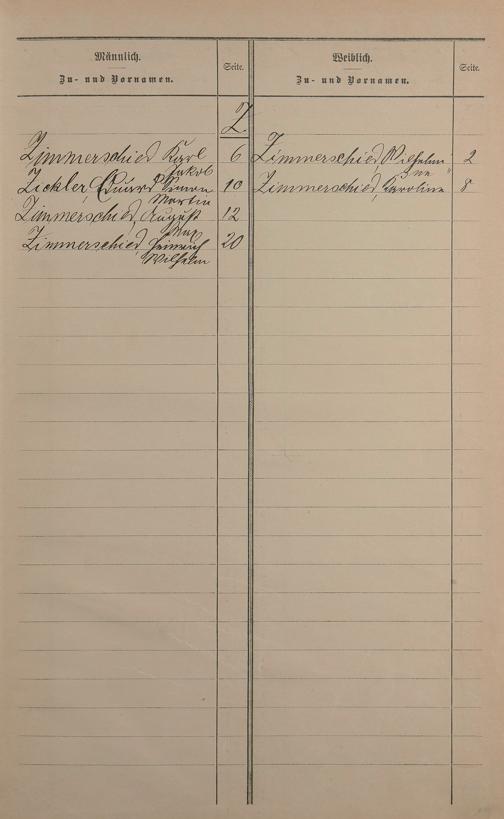 Männlich.
Zu- und Vornamen.
Seite.
Weiblich.
Zu- und Vornamen.
Seite.
Z
Zimmerschied Karl 6
Jakob
Zickler, Eduard Simon 10
Martin
Zimmerschied, August 12
Max
Zimmerschied, Heinrich 20
Wilhelm
Zimmerschied, Wilhelmi 2
ne
Zimmerschied, Karoline 8